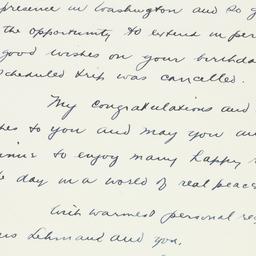 presence in Washington and so g
the opportunity to extend in per
good wishes on your birthda
scheduled trip was cancelled.
My congratulations and
hes to you and may you an
inue to enjoy many happy r
e day in a world of real peac
With warmest personal reg
Lehman and you.